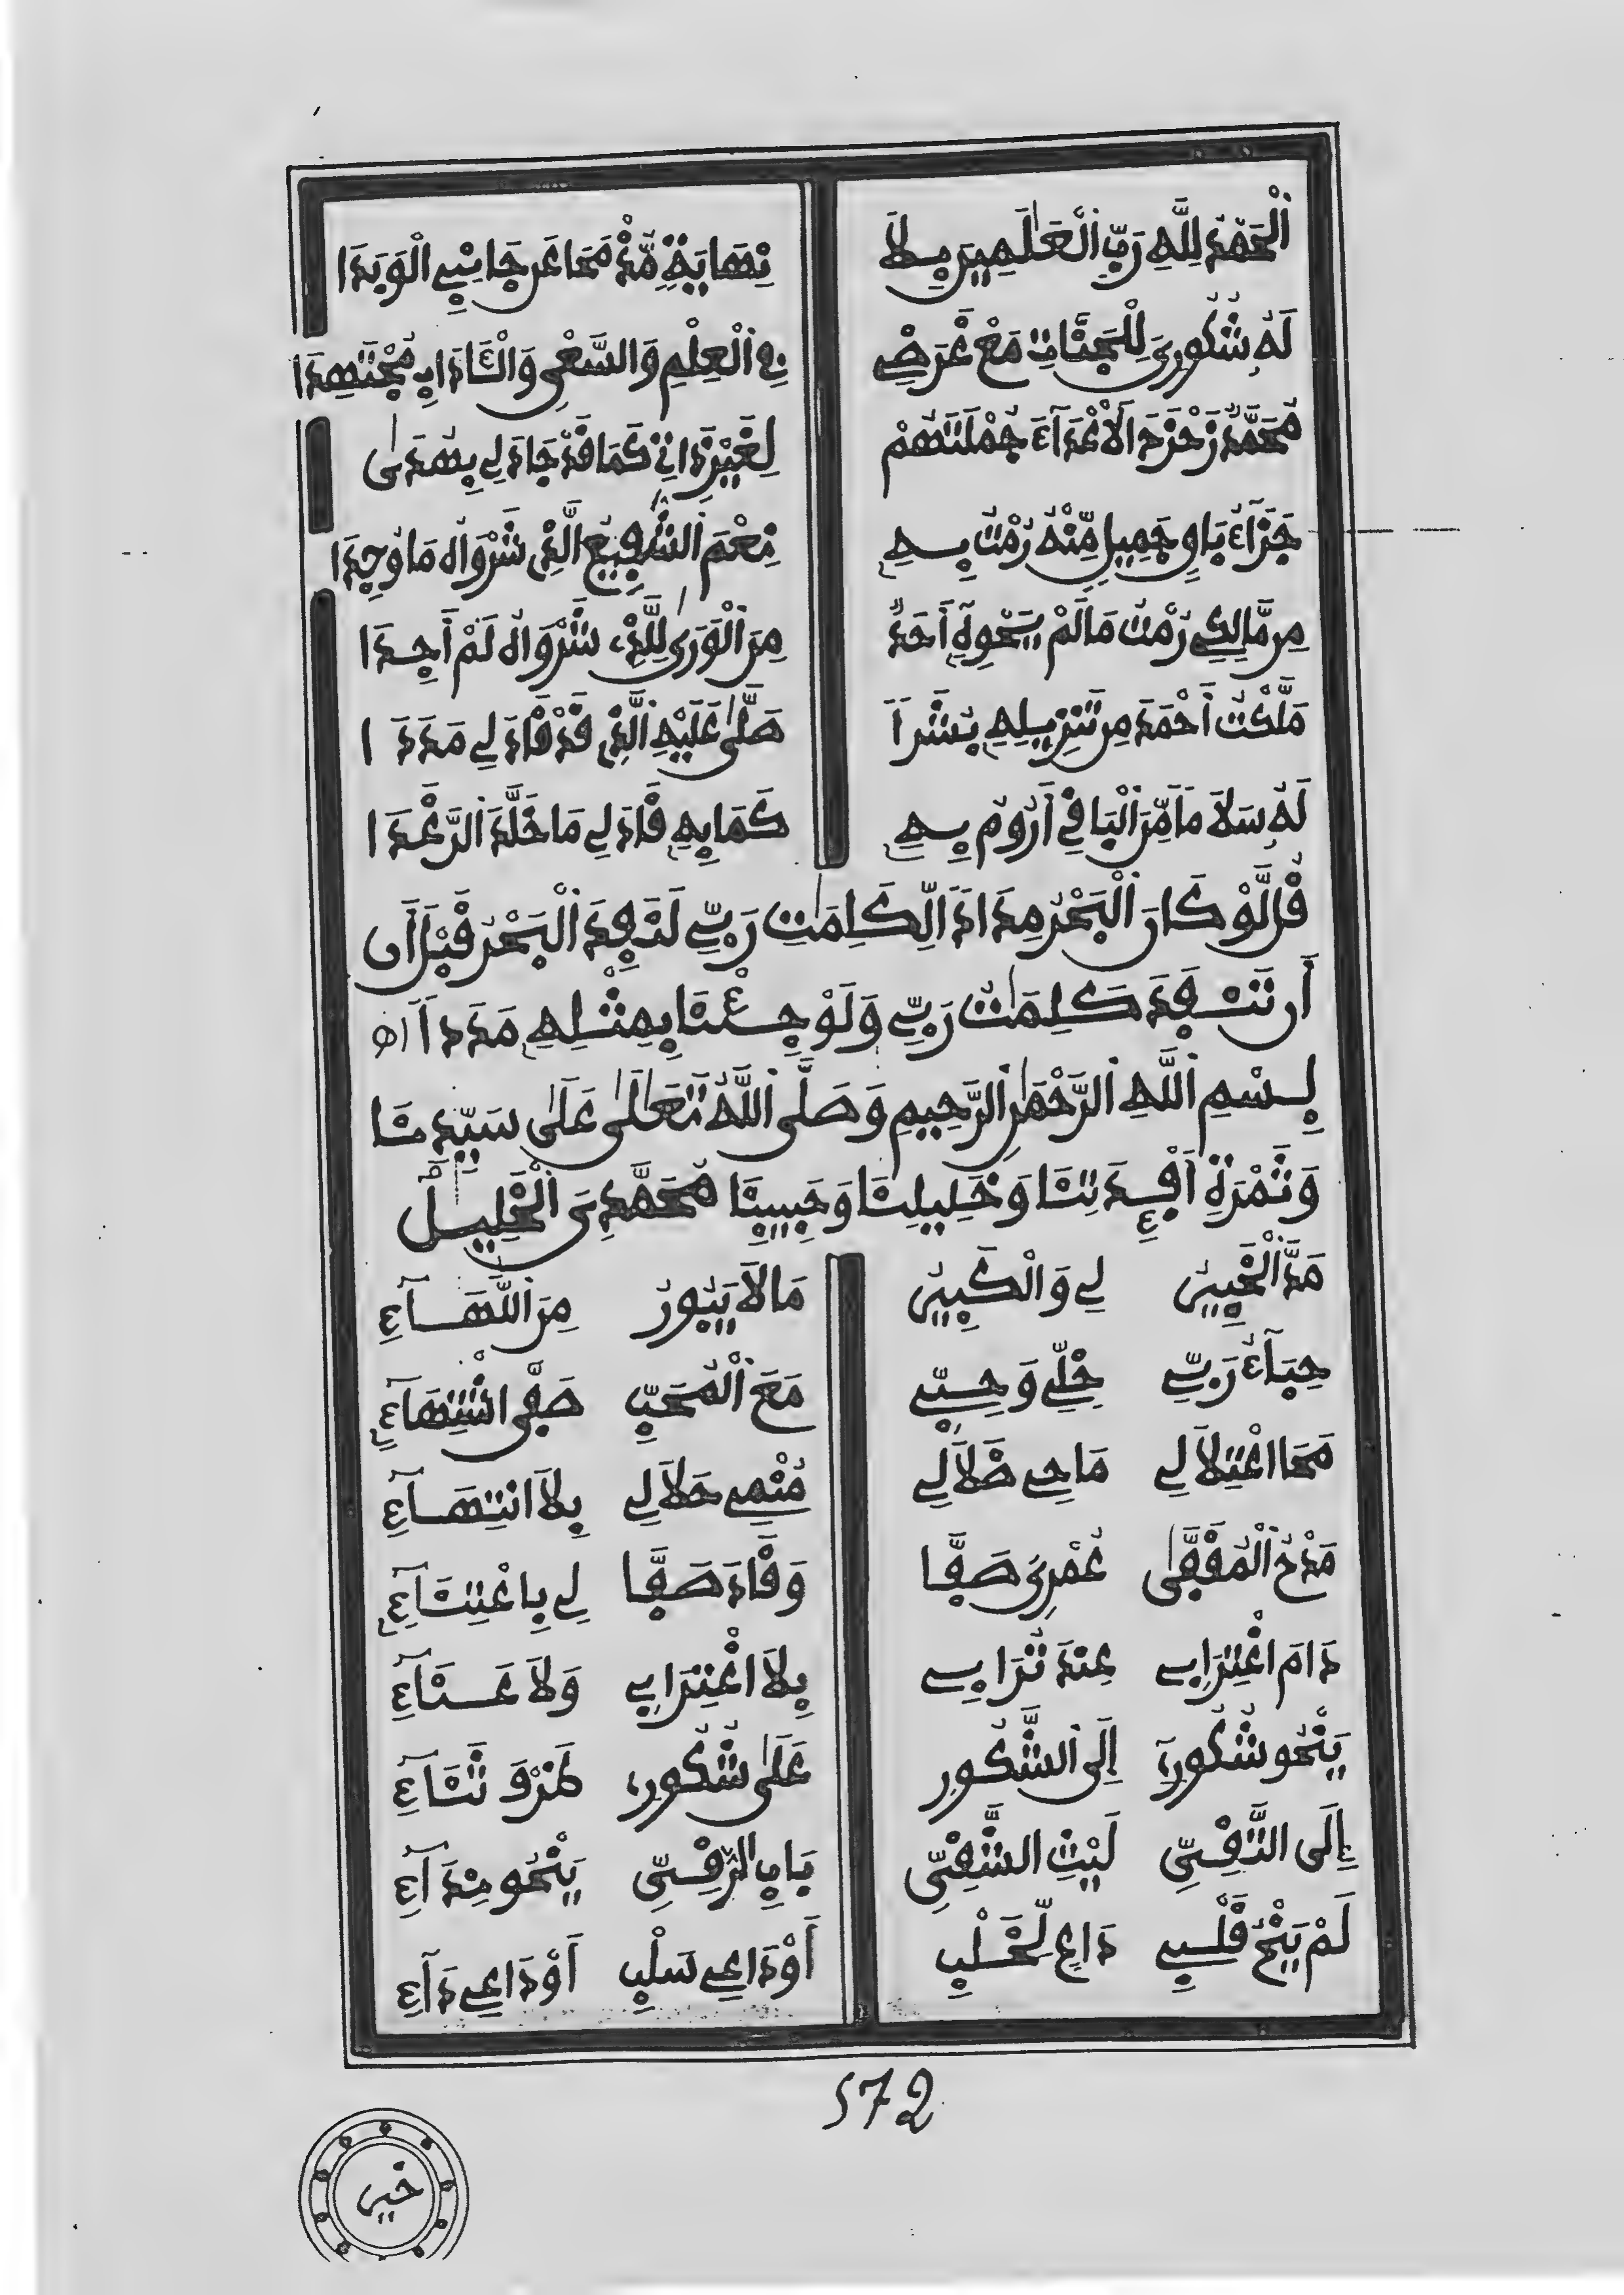 اَلْحَمْدُ لِلَّهِ رَبِّ الْعَٰلَمِينَ بِلَا نِهَايَةٍ مُّذْ مَحَا عَن جَانِبِي الْوَبَدَا
لَهُ شُكُورِيَ لِلْجَنَّاتِ مَعْ غَرَضِي فِي الْعِلْمِ وَالسَّعْيِ وَالْـَٔادَابِ مُجْتَهِدَا
مُحَمَّدٌ زَحْزَحَ الْأَعْدَآءَ جُمْلَتَهُمْ لِغَيْرِ ذَاتِي كَمَا قَدْ جَادَ لِي بِهُدَىٰ
جَزَآءُ بَاقٍ جَمِيلٍ مِّنْهُ رُمْتُ بِهِ نِعْمَ الشَّفِيعُ الَّذِي شَرْوَاهُ مَا وُجِدَا
مِن مَّالِكِي رُمْتُ مَا لَمْ يَحْوِهِ أَحَدٌ مِنَ الْوَرَىٰ لِلَّذِي شَرْوَاهُ لَمْ أَجِدَا
مَلَّكْتُ أَحْمَدَ مِن تَنزِيلِهِ بَشَرًا صَلَّىٰ عَلَيْهِ الَّذِي قَدْ قَادَ لِي مَدَدَا
لَهُ سَلَامًا مِّنَ الْبَاقِي أَرُومُ بِهِ كَمَا بِهِ قَادَ لِي مَا خَلَّدَ الرَّغَدَا
قُل لَّوْ كَانَ الْبَحْرُ مِدَادًا لِّكَلِمَٰتِ رَبِّي لَنَفِدَ الْبَحْرُ قَبْلَ أَن
أَن تَنفَدَ كَلِمَٰتُ رَبِّي وَلَوْ جِئْنَا بِمِثْلِهِ مَدَدًا
بِسْمِ اللَّهِ الرَّحْمَٰنِ الرَّحِيمِ وَصَلَّى اللَّهُ تَعَالَىٰ عَلَىٰ سَيِّدِنَا
وَثَمْرَةِ أَفْئِدَتِنَا وَخَلِيلِنَا وَحَبِيبِنَا مُحَمَّدٍ الْخَلِيلْ
مَدَّ الْخَبِيرُ لِي وَالْكَبِيرُ مَا لَا يَبُورُ مِنَ اللَّهَآءِ
حِبَآءُ رَبِّي خِلِّي وَحِبِّي مَعَ الْمُحَبِّ صَفَّى اشْتِهَآءِ
مَحَا اعْتِلَالِي مَاحِي ضَلَالِي مُنْمِي حَلَالِي بِلَا انتِهَآءِ
مَدْحُ الْمُقَفَّىٰ عُمْرِيَ صَفَّا وَقَادَ صَفَّا لِي بِاعْتِنَآءِ
دَامَ اقْتِرَابِي عِندَ تُرَابِي بِلَا اغْتِرَابِي وَلَا عَنَآءِ
يَنْحُو شُكُورِي إِلَى الشَّكُورِ عَلَىٰ شُكُورِي لَهُ ثَنَآءِ
إِلَى التَّقِيِّ لَيْثِ الشَّقِيِّ بَابِ الرُّقِيِّ يَنْحُو نِدَآءِ
لَمْ يَنْحُ قَلْبِي دَاعٍ لِّخَلْبِ أَوْ دَاعِي سَلْبِ أَوْ دَاعِي دَآءِ
572
خير